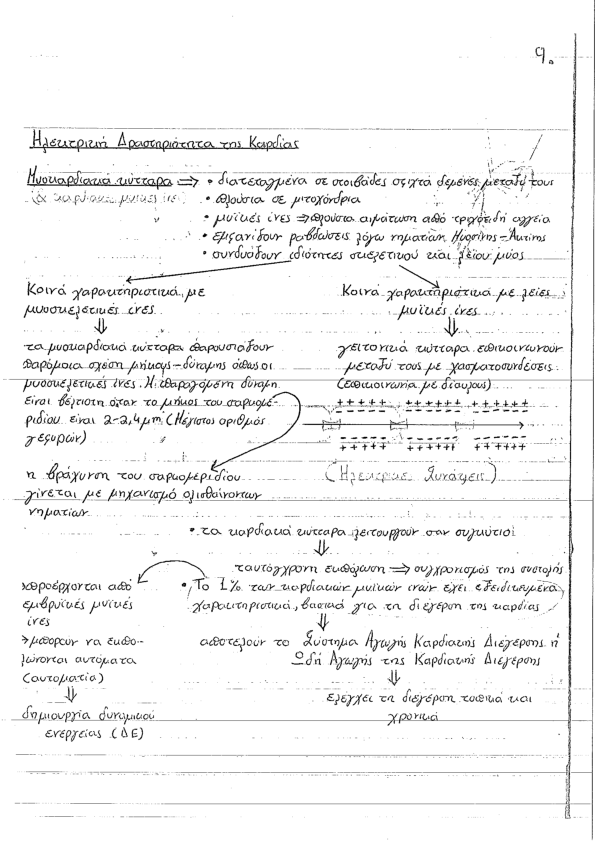 9.
Ηλεκτρική Δραστηριότητα της Καρδίας
Μυοκαρδιακά κύτταρα ⇒ • διατεταγμένα σε στοιβάδες σφιχτά δεμένες μεταξύ τους
(ή καρδιακές μυϊκές ίνες) • πλούσια σε μιτοχόνδρια
• μυϊκές ίνες ⇒ πλούσια αιμάτωση από τριχοειδή αγγεία
• εμφανίζουν ραβδώσεις λόγω νηματίων Μυοσίνης - Ακτίνης
• συνδυάζουν ιδιότητες σκελετικού και λείου μυός
Κοινά χαρακτηριστικά με
μυοσκελετικές ίνες
⇓
τα μυοκαρδιακά κύτταρα παρουσιάζουν
παρόμοια σχέση μήκους-δύναμης όπως οι
μυοσκελετικές ίνες. Η παραγόμενη δύναμη
είναι βέλτιστη όταν το μήκος του σαρκομε-
ριδίου είναι 2-2,4μm (Μέγιστος αριθμός
γεφυρών)
η βράχυνση του σαρκομεριδίου
γίνεται με μηχανισμό ολισθαίνοντων
νηματίων
Κοινά χαρακτηριστικά με λείες
μυϊκές ίνες
⇓
γειτονικά κύτταρα επικοινωνούν
μεταξύ τους με χασματοσυνδέσεις
(επικοινωνία με διαύλους)
+++++ +++++ ++++++
+++++ +++++ +++++
(Ηλεκτρικές Συνάψεις)
• τα καρδιακά κύτταρα λειτουργούν σαν συγκύτιο!
⇓
ταυτόχρονη εκπόλωση ⇒ συγχρονισμός της συστολής
• Το 1% των καρδιακών μυϊκών ινών έχει εξειδικευμένα
χαρακτηριστικά, βασικά για τη διέγερση της καρδίας
⇓
αποτελούν το Σύστημα Αγωγής Καρδιακής Διέγερσης ή
Οδή Αγωγής της Καρδιακής Διέγερσης
⇓
ελέγχει τη διέγερση τοπικά και
χρονικά
προέρχονται από
εμβρυϊκές μυϊκές
ίνες
> μπορούν να εκπο-
λώνονται αυτόματα
(αυτοματία)
⇓
δημιουργία δυναμικού
ενέργειας (ΔΕ)